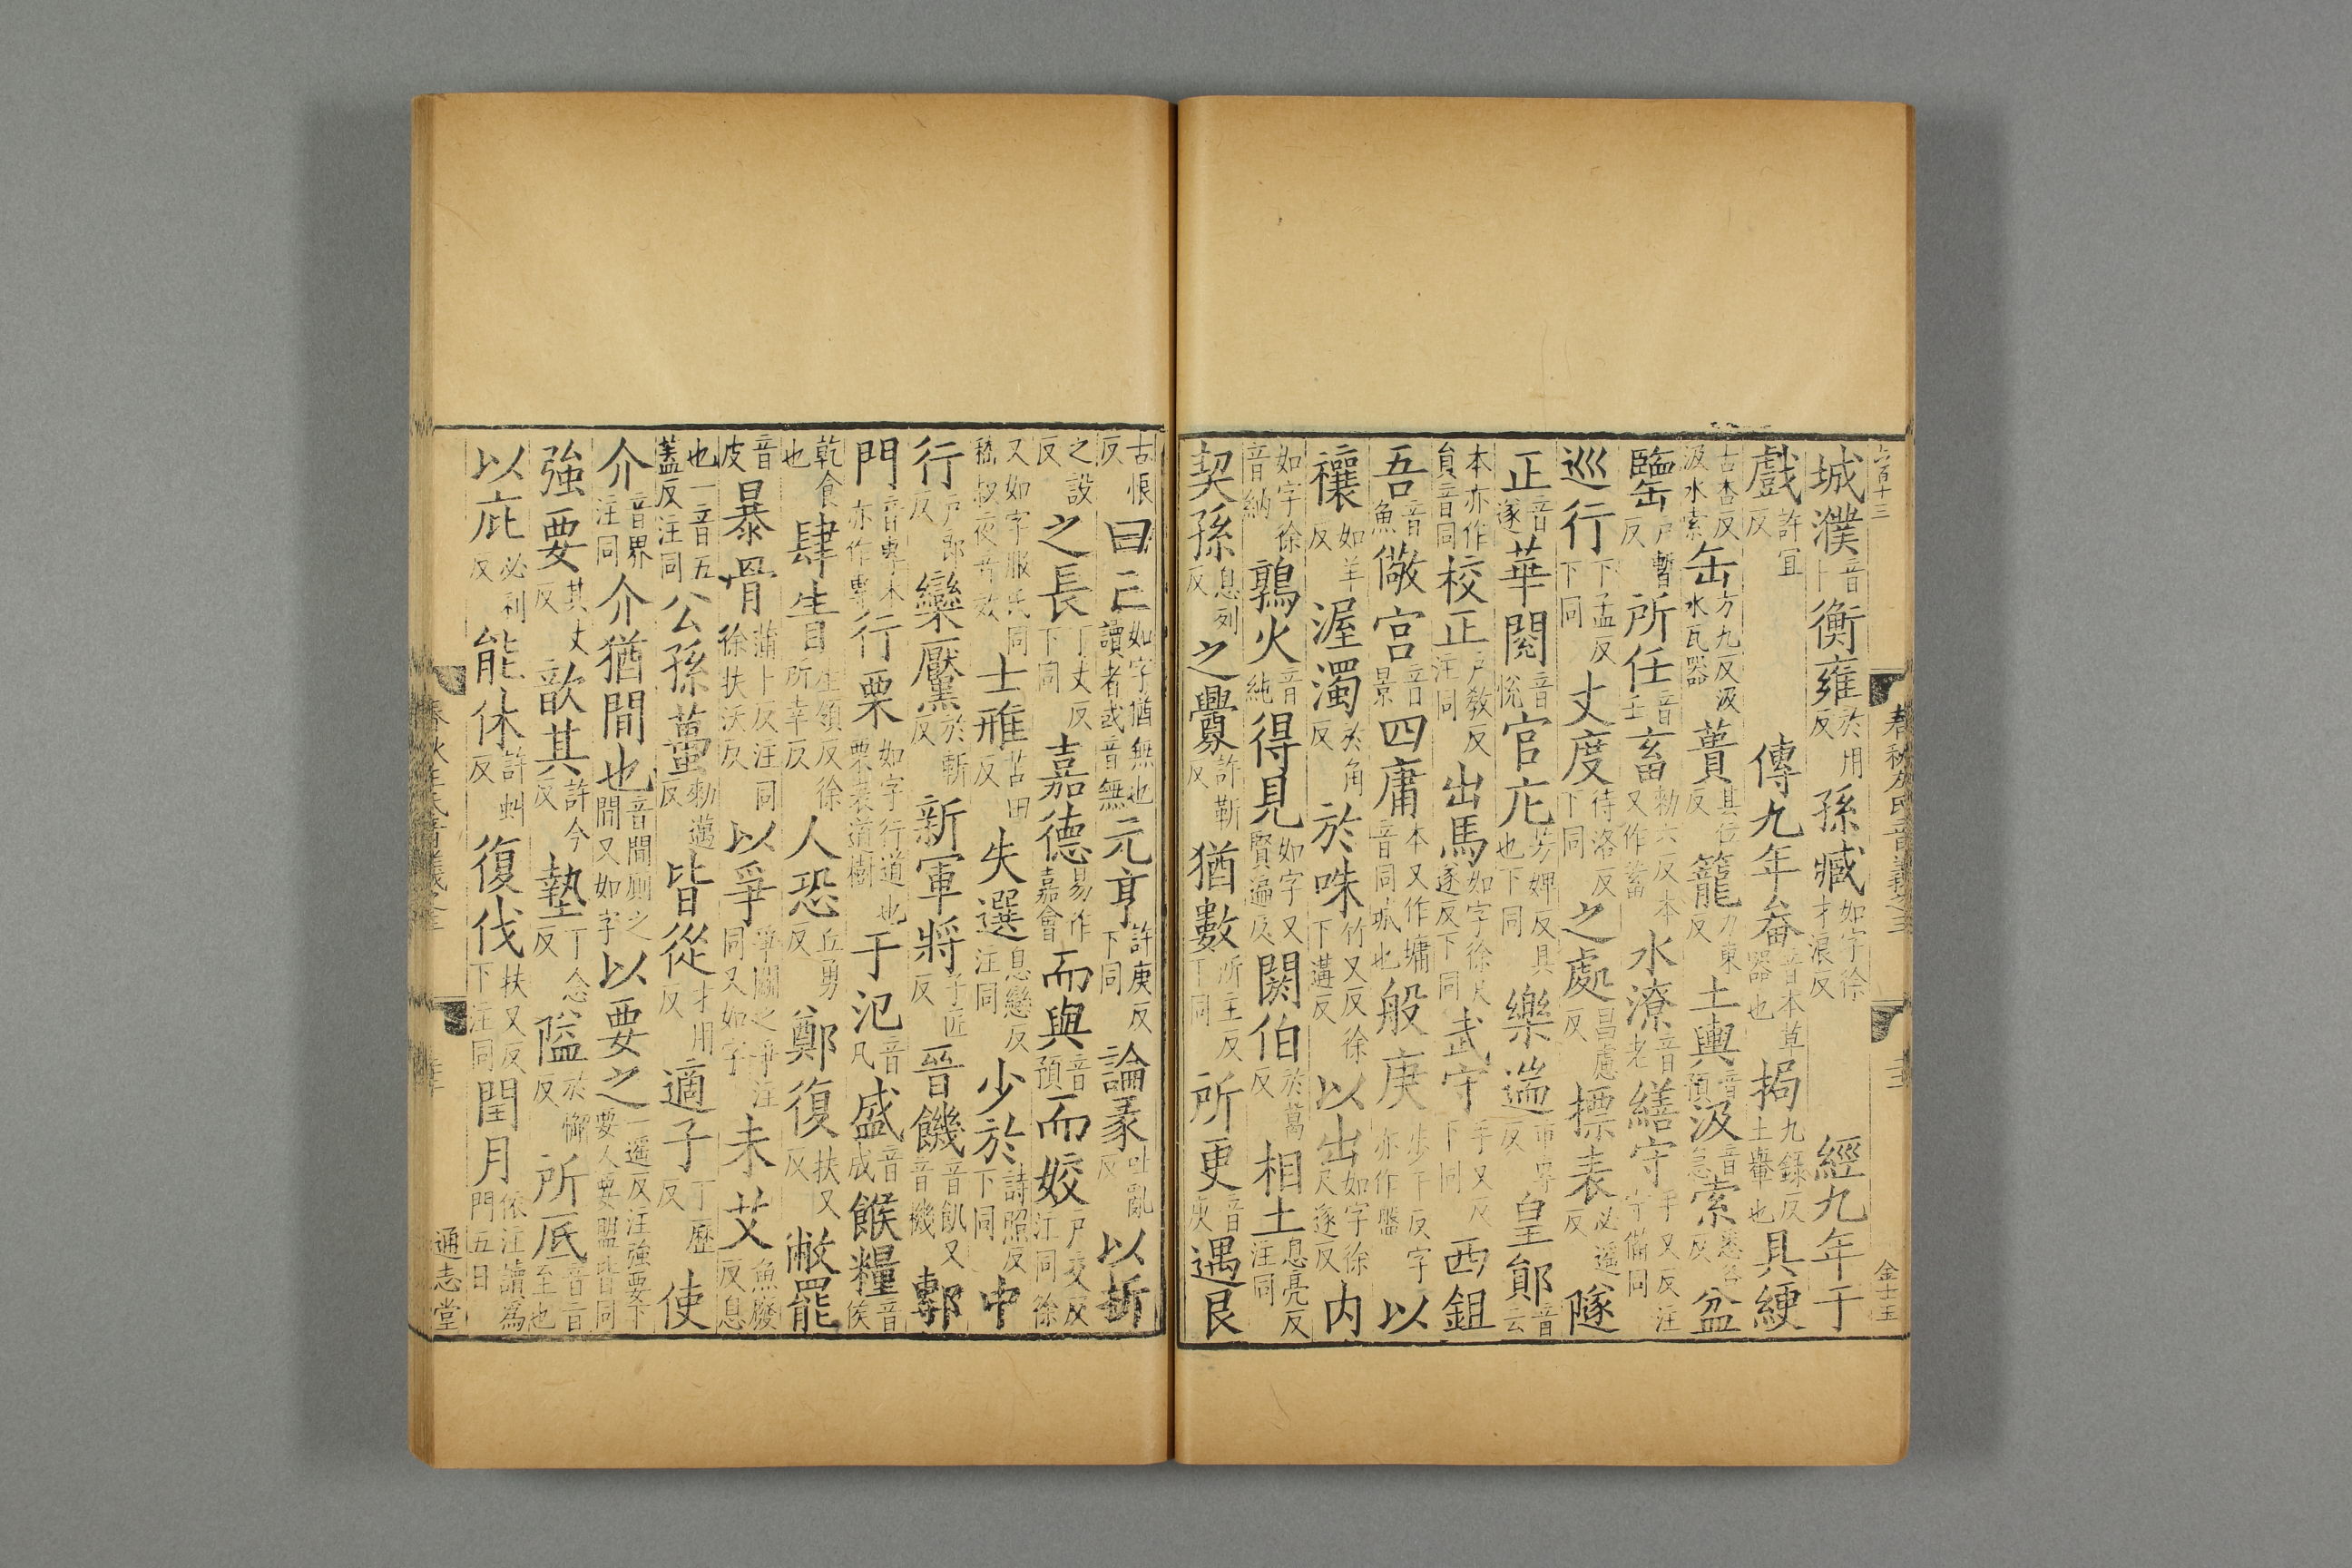 城濮音卜衡雍於用反孫臧如字徐才浪反經九年于
戲許宜反傳九年畚音本草器也挶九錄反土轝也具綆
古杏反汲水索缶方九反汲水瓦器蕢其位反籠力東反土輿音預汲音急索悉各反盆
鑒戶暫反所任音壬畜勑六反本又作蓄水潦音老繕守手又反注守備同
巡行下孟反下同丈度待洛反下同之處昌慮反摽表必遥反隧
正音遂華閱音悅官庀芳婢反具也下同樂遄市專反皇鄖音云
本亦作負音同校正戶敎反注同出馬如字徐尺遂反下同武守手又反下同西鉏
吾音魚儆宮音景四庸本又作墉音同城也般庚步干反字亦作盤以
禳如羊反渥濁於角反於咮竹又反徐下遘反以出如字徐尺遂反内
如字徐音納鶉火音純得見如字又賢遍反閼伯於葛反相土息亮反注同
契孫息列反之釁許靳反猶數所主反下同所更音庚遇艮
古恨反曰亡如字猶無也讀者或音無元亨許庚反下同論彖吐亂反以折
之設反之長丁丈反下同嘉德易作嘉會而與音預而姣戶交反注同徐
又如字服氏同嵇叔夜音效士雃苦田反失選息戀反注同少於詩照反下同中
行戶郎反欒黶於斬反新軍將子匠反晉饑音飢又音機鄟
門音專本亦作專行栗如字行道也栗表道樹于氾音凡盛音成餱糧音侯
乾食也肆眚生領反徐所幸反人恐丘勇反鄭復扶又反敝罷
音皮暴骨蒲卜反注同徐扶沃反以爭爭鬭之爭注同又如字未艾魚廢反息
也一音五蓋反注同公孫蠆勑邁反皆從才用反適子丁歷反使
介音界注同介猶間也音間厠之間又如字以要之一遥反注強要下要人要盟皆同
強要其丈反歆其許今反墊丁念反隘於懈反所底音旨至也
以庇必利反能休許虯反復伐扶又反下注同閏月依注讀爲門五日
通志堂